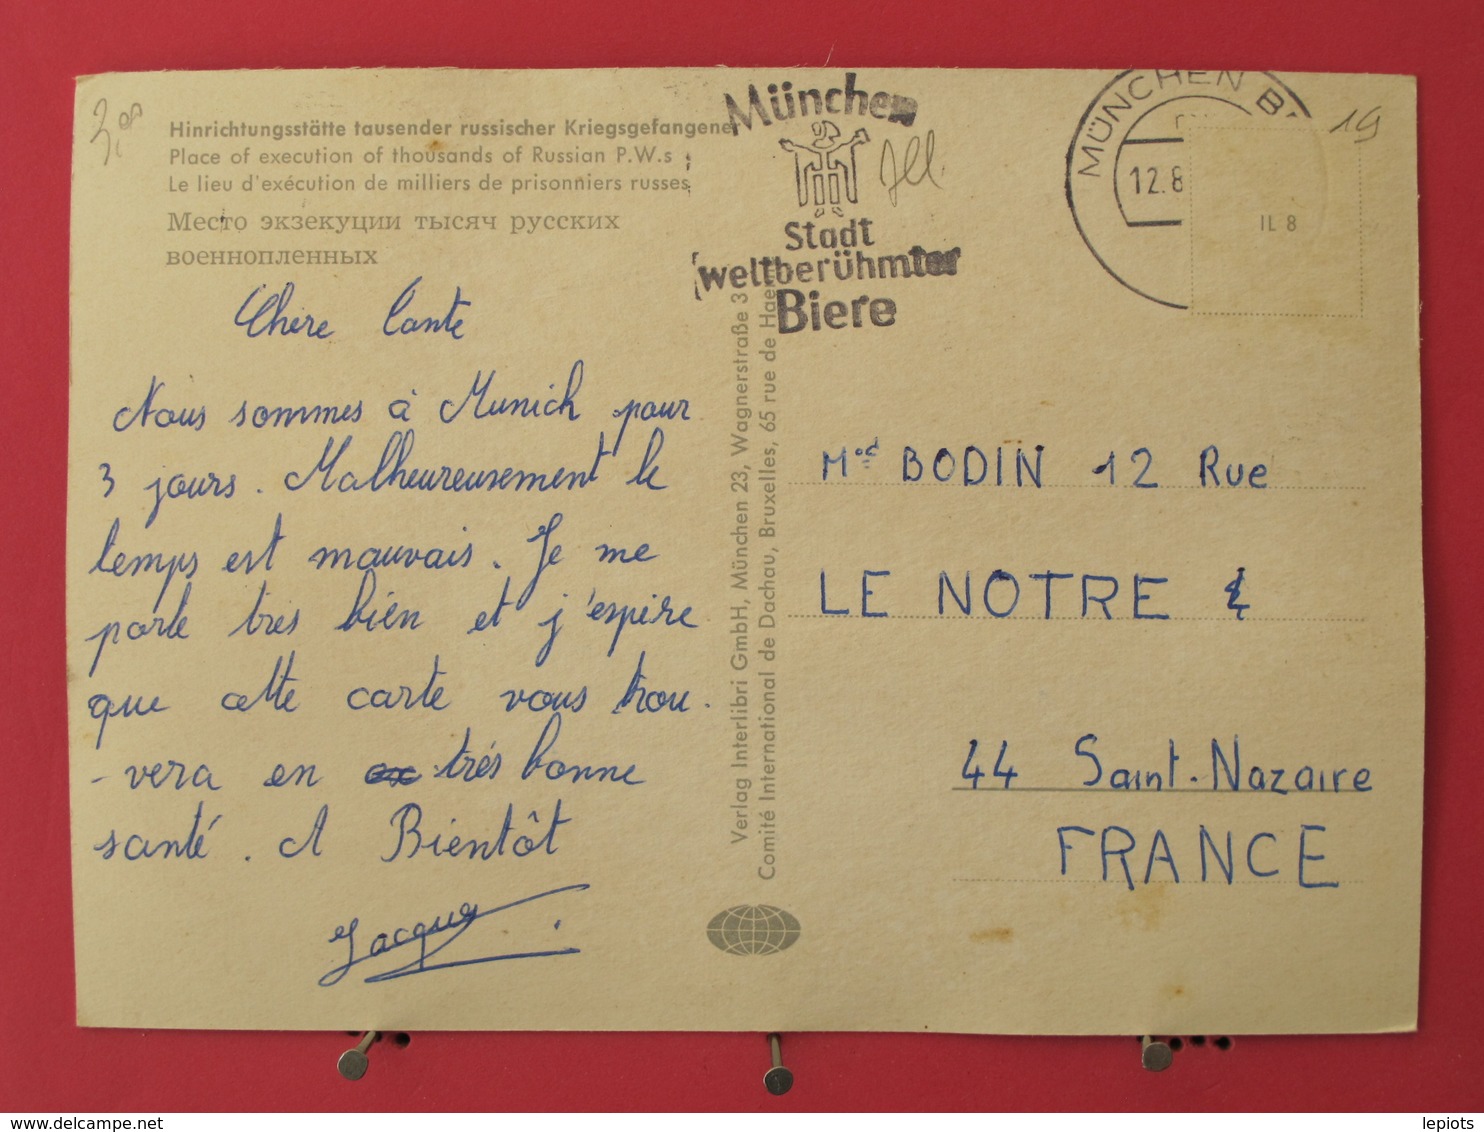 Hinrichtungsstätte tausender russischer Kriegsgefangener
Place of execution of thousands of Russian P.W.s
Le lieu d'exécution de milliers de prisonniers russes
Место экзекуции тысяч русских
военнопленных
Chère Tante
Nous sommes à Munich pour
3 jours. Malheureusement le
temps est mauvais. Je me
porte très bien et j'espère
que cette carte vous trou-
-vera en très bonne
santé. A Bientôt
Jacques
München
Stadt
weltberühmter
Biere
MÜNCHEN B
12.8
19
IL 8
Verlag Interlibri GmbH, München 23, Wagnerstraße 3
Comité International de Dachau, Bruxelles, 65 rue de Haerne
BODIN 12 Rue
LE NOTRE
44 Saint-Nazaire
FRANCE
lepiots